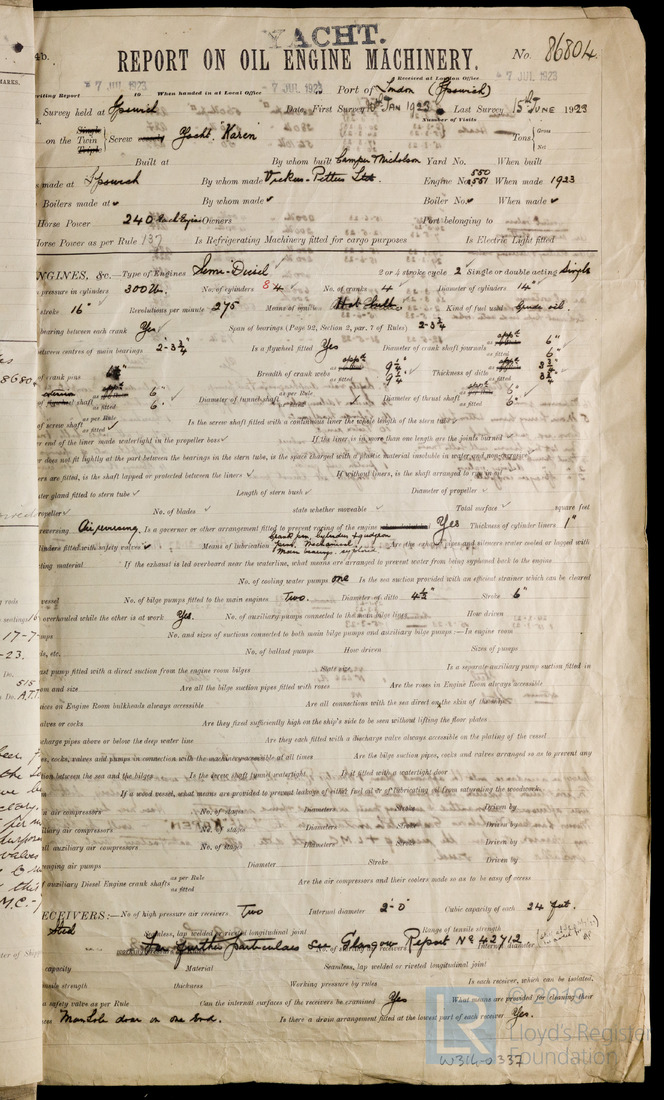 YACHT.
4b. REPORT ON OIL ENGINE MACHINERY. No. 86804
Received at London Office
7 JUL 1923 7 JUL 1923 7 JUL 1923
writing Report When handed in at Local Office Port of London (Ipswich)
Survey held at Ipswich Date, First Survey JAN 1923 Last Survey 15th JUNE 1923
Number of Visits
on the Single Twin Triple Screw Yacht. "Karen" Tons Gross Net
Built at By whom built Camper Nicholson Yard No. When built
made at Ipswich By whom made Vickers-Petters Ltd. Engine No. 550 551 When made 1923
Boilers made at By whom made Boiler No. When made
Horse Power 240 each Engine Owners Port belonging to
Horse Power as per Rule 137 Is Refrigerating Machinery fitted for cargo purposes Is Electric Light fitted
ENGINES, &c.—Type of Engines Semi-Diesel 2 or 4 stroke cycle 2 Single or double acting Single
pressure in cylinders 300 lbs. No. of cylinders 8 4 No. of cranks 4 Diameter of cylinders 14"
stroke 16" Revolutions per minute 275 Means of ignition Hot Bulb Kind of fuel used Crude oil.
bearing between each crank Yes Span of bearings (Page 92, Section 2, par. 7 of Rules) 2-3¾
between centres of main bearings 2'-3¾" Is a flywheel fitted Yes Diameter of crank shaft journals appd as fitted 6" 6"
of crank pins Breadth of crank webs appd as fitted 9¼" 9¼ Thickness of ditto appd as fitted
shaft appd as fitted 6" 6" Diameter of tunnel shaft as per Rule as fitted Diameter of thrust shaft appd as fitted 6" 6"
of screw shaft as per Rule as fitted Is the screw shaft fitted with a continuous liner the whole length of the stern tube
end of the liner made watertight in the propeller boss If the liner is in more than one length are the joints burned
does not fit tightly at the part between the bearings in the stern tube, is the space charged with a plastic material insoluble in water and non-corrosive
ers are fitted, is the shaft lapped or protected between the liners If without liners, is the shaft arranged to run in oil
ter gland fitted to stern tube Length of stern bush Diameter of propeller
propeller No. of blades state whether moveable Total surface square feet
reversing Air reversing. Is a governor or other arrangement fitted to prevent racing of the engine Yes Thickness of cylinder liners 1"
linders fitted with safety valves Means of lubrication Are the exhaust pipes and silencers water cooled or lagged with
ting material If the exhaust is led overboard near the waterline, what means are arranged to prevent water from being syphoned back to the engine
No. of cooling water pumps one Is the sea suction provided with an efficient strainer which can be cleared
vessel No. of bilge pumps fitted to the main engines Two. Diameter of ditto 4½" Stroke 6"
overhauled while the other is at work Yes. No. of auxiliary pumps connected to the main bilge lines How driven
No. and sizes of suctions connected to both main bilge pumps and auxiliary bilge pumps:—In engine room
ds, etc. No. of ballast pumps How driven Sizes of pumps
ast pump fitted with a direct suction from the engine room bilges State size Is a separate auxiliary pump suction fitted in
m and size Are all the bilge suction pipes fitted with roses Are the roses in Engine Room always accessible
ices on Engine Room bulkheads always accessible Are all connections with the sea direct on the skin of the ship
alves or cocks Are they fixed sufficiently high on the ship's side to be seen without lifting the floor plates
charge pipes above or below the deep water line Are they each fitted with a discharge valve always accessible on the plating of the vessel
es, cocks, valves and pumps in connection with the machinery accessible at all times Are the bilge suction pipes, cocks and valves arranged so as to prevent any
tion between the sea and the bilges Is the screw shaft tunnel watertight Is it fitted with a watertight door
If a wood vessel, what means are provided to prevent leakage of either fuel oil or of lubricating oil from saturating the woodwork
n air compressors No. of stages Diameters Stroke Driven by
iliary air compressors No. of stages Diameters Stroke Driven by
ll auxiliary air compressors No. of stages Diameters Stroke Driven by
enging air pumps Diameter Stroke Driven by
f auxiliary Diesel Engine crank shafts as per Rule as fitted Are the air compressors and their coolers made so as to be easy of access
ECEIVERS:—No of high pressure air receivers Two Internal diameter 2'-0" Cubic capacity of each 24 feet.
Steel Seamless, lap welded or riveted longitudinal joint Range of tensile strength
For further particulars see Glasgow Report No 42712
capacity Material Seamless, lap welded or riveted longitudinal joint
nsile strength thickness Working pressure by rules Is each receiver, which can be isolated,
a safety valve as per Rule Can the internal surfaces of the receivers be examined Yes What means are provided for cleaning their
Manhole door on one end. Is there a drain arrangement fitted at the lowest part of each receiver Yes.
© 2019
LR Lloyd's Register
Foundation
W314-0337